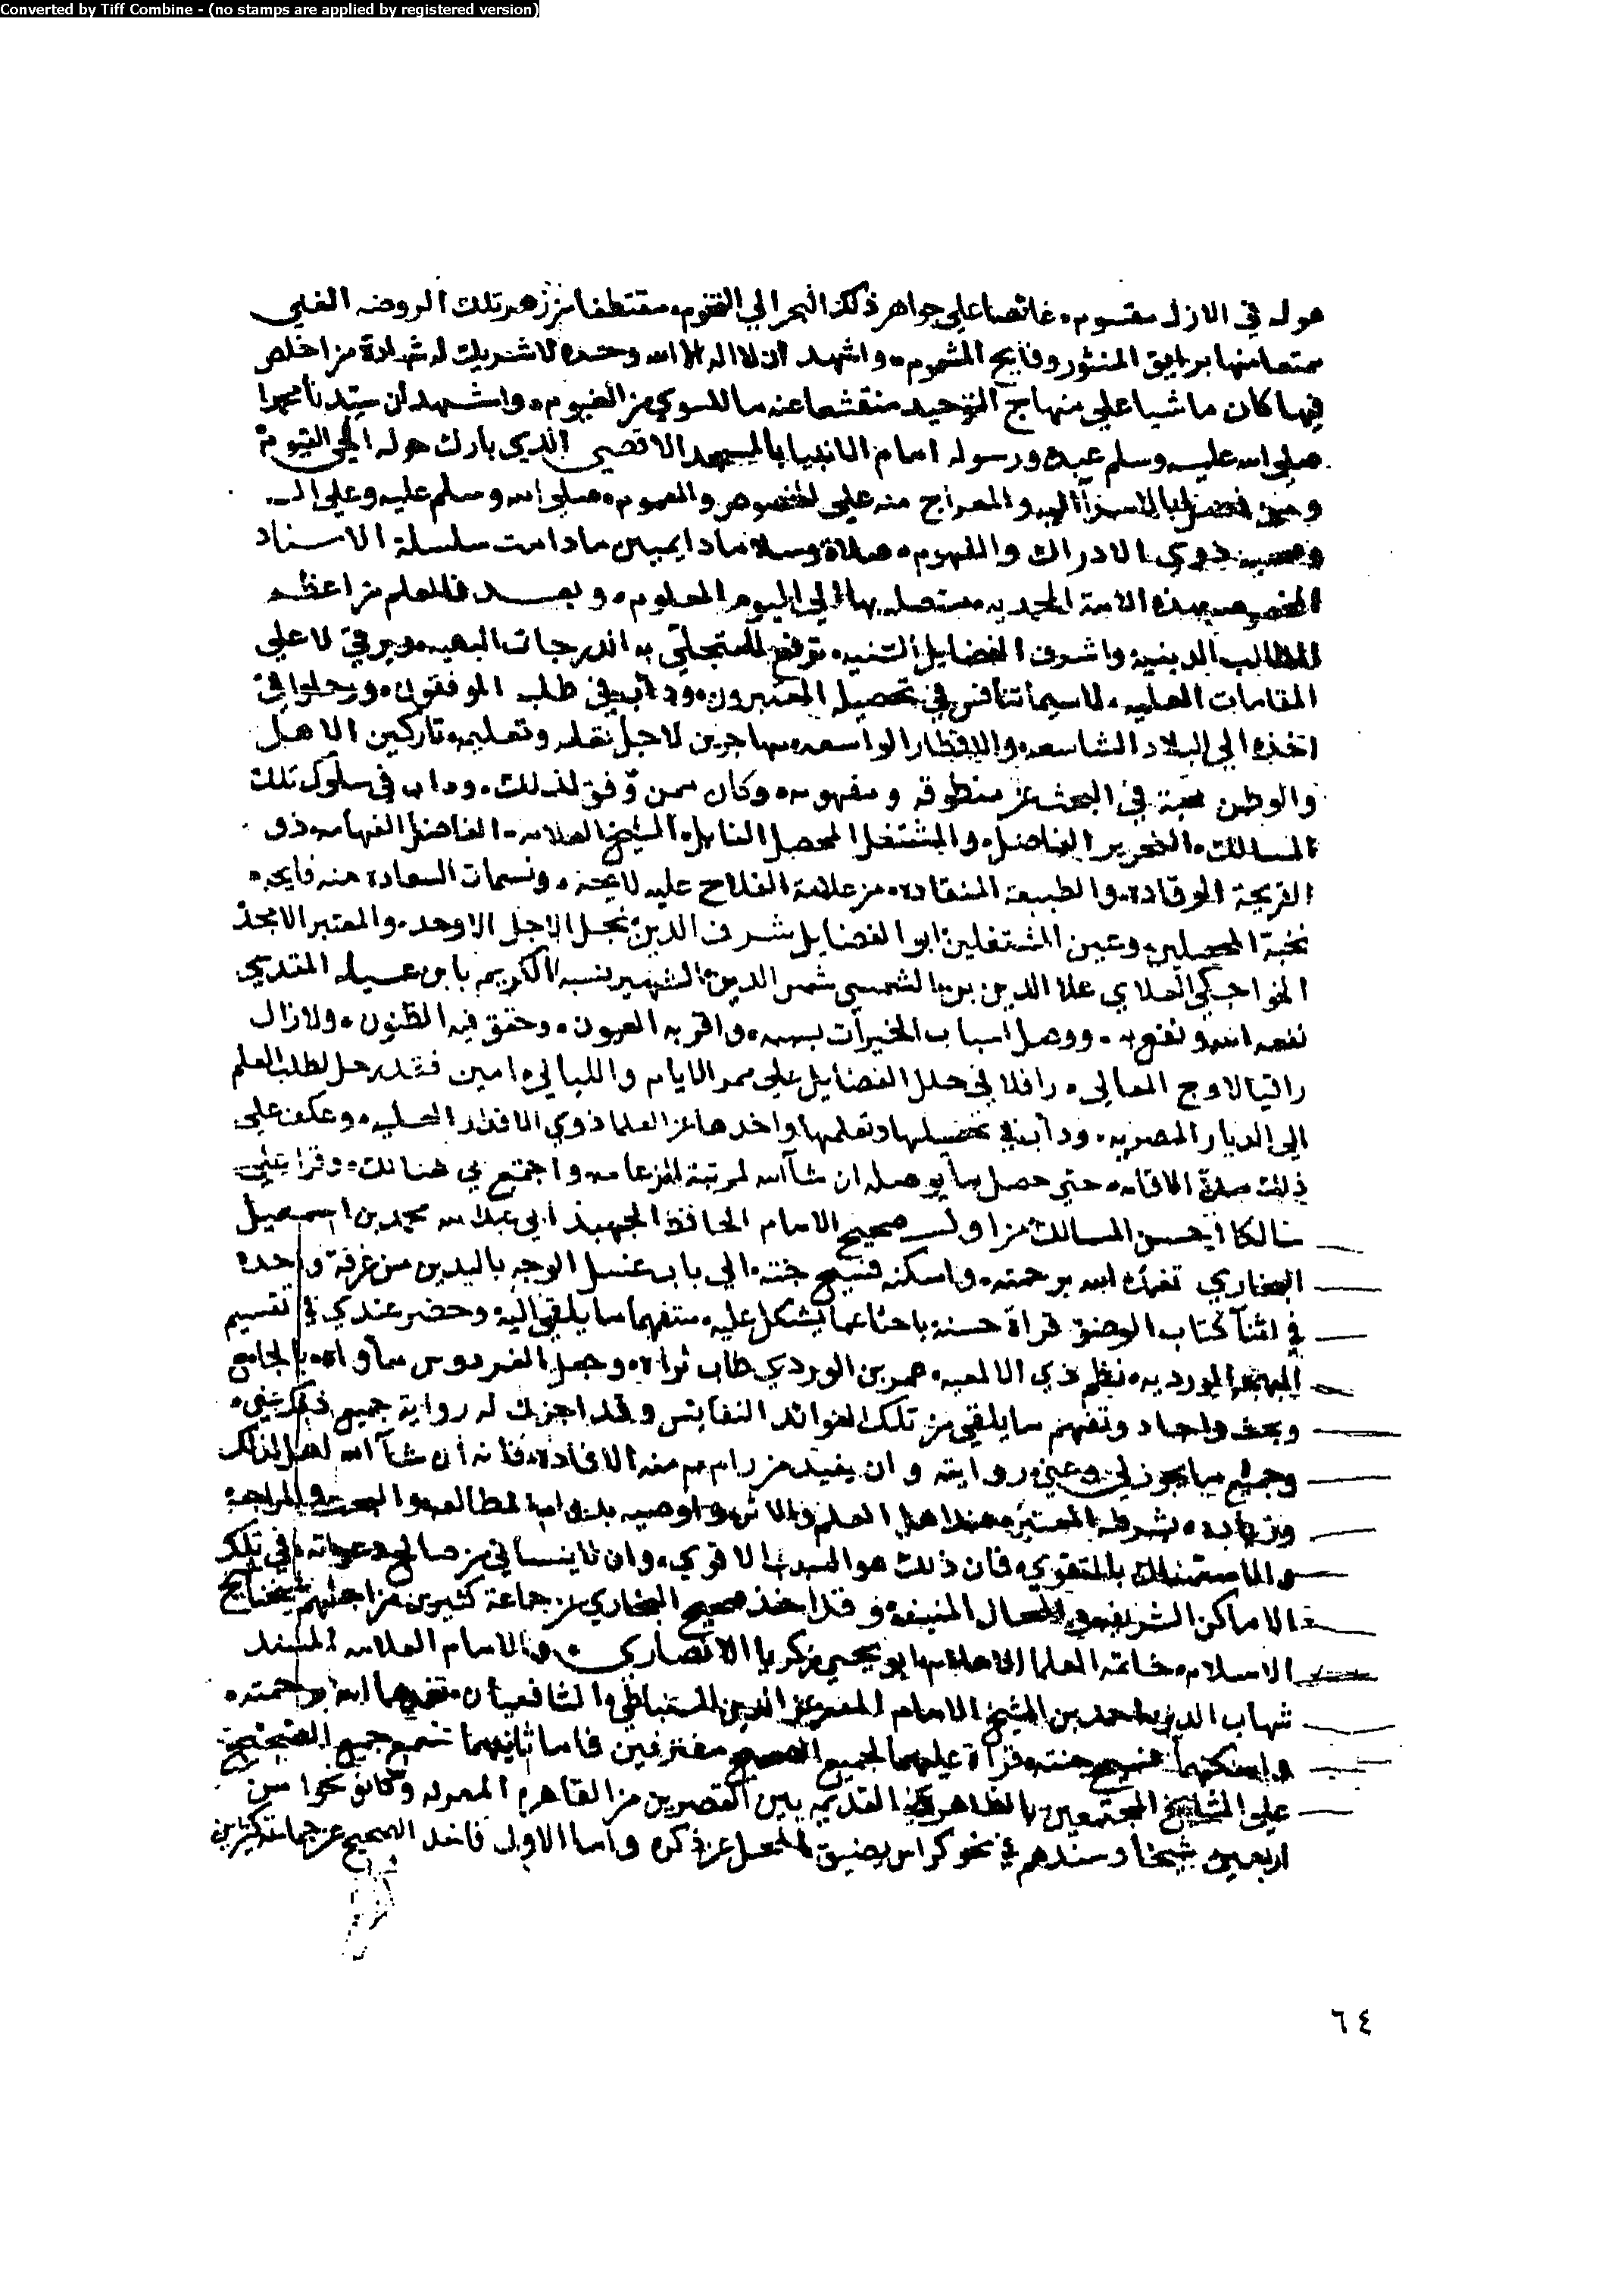 Converted by Tiff Combine - (no stamps are applied by registered version)
هو له في الازل مقسوم، غائصا على جواهر ذلك البحر الي التخوم، مقتطفا من زهر تلك الروضه الغلي
متمتعا منها برايق المنثور وفايح المشموم، واشهد ان لا اله الا الله وحده لا شريك له شهادة من اخلص
فيها كان ماشيا علي منهاج التوحيد منقشعا عنه ما للسوي من الغيوم، واشهد ان سيدنا محمدا
صلى الله عليه وسلم عبده ورسوله امام الانبيا بالمسجد الاقصي الذي بارك حوله الحي القيوم
ومن فضل بالاسراء اليه والمعراج منه علي الخصوص والعموم، صلي الله وسلم عليه وعلى اله
وصحبه ذوي الادراك والفهوم، صلاة وسلاما دايمين ما دامت سلسلة الاسناد
المخصوصه بهذه الامة المحمديه متصله بها الي اليوم المعلوم، وبعد فالعلم من اعظم
المطالب الدينيه واشرف الفضايل السنيه، ترفع المتحلي به الدرجات البهيه، ويرقي لاعلي
المقامات العليه، لاسيما تنافس في تحصيله المعتبرون، ودأب في طلبه الموفقون، ورحلوا في
اخذه الي البلاد الشاسعه والاقطار الواسعه، مهاجرين لاجل نقله وتعليمه، تاركين الاهل
والوطن محبة في البحث عن منطوقه ومفهومه، وكان ممن وفق لذلك، وداب في سلوك تلك
المسالك، النحرير الفاضل، والمشتغل المحصل النابل، الشيخ العلامه، الفاضل الفهامه، ذو
القريحة الوقاده، والطبيعة المنقاده، من علامة الفلاح عليه لايحه، ونسمات السعاده منه فايحه
نخبة المحصلين، وعين المشتغلين، ابو الفضايل شرف الدين، نجل الاجل الاوحد، والمعتبر الامجد
الخواجكي العلاي علا الدين بن الشمسي شمس الدين، الشهير نسبه الكريم بابن عسيله المقدسي
نفعه الله ونفع به، ووصل اسباب الخيرات بسببه، واقر به العيون، وحقق فيه الظنون، ولا زال
راقيا لاوج المعالي، رافلا في حلل الفضايل علي ممر الايام والليالي، امين فقد رحل لطلب العلم
الي الديار المصريه، ودأب في تحصيلها وتعلمها واخذها عن العلما ذوي الاقدار العليه، وعكف علي
ذلك مدة الاقامه، حتي حصل ما يوصله ان شاء الله لمرتبة الزعامه، واجتمع بي هنالك، وقرأ علي
سالكا احسن المسالك، من اول صحيح الامام الحافظ الجهبذ ابي عبد الله محمد بن اسمعيل
البخاري تغمده الله برحمته، واسكنه فسيح جنته، الي باب غسل الوجه باليدين من غرفة واحده
في اثناء كتاب الوضو، قراة حسنه باحثا عما يشكل عليه، متفهما ما يلقي اليه، وحضر عندي في تقسيم
البهجه الورديه، نظم ذي الالمعيه، عمر بن الوردي طاب ثراه، وجعل الفردوس مأواه، بالجامع
وبحث واجاد وتفهم ما يلقي من تلك الفوائد النفايس وقد اجزت له رواية جميع ذلك عني،
وجميع ما يجوز لي وعني روايته وان يفيد من رام منه الافاده، فانه ان شاء الله اهل لذلك
وزياده، بشرطه المعتبر، عند اهل العلم والاثر، واوصيه بدوام المطالعه، والبحث والمراجعه
والاستمساك بالتقوي، فان ذلك هو السبب الاقوي، وان لا ينساني من صالح دعواته، في تلك
الاماكن الشريفه، والمحال المنيفه، وقد اخذ صحيح البخاري عن جماعة كثيرين من اجلهم شيخنا شيخ
الاسلام، خاتمه العلما الاعلام، ابو يحيي زكريا الانصاري، والامام العلامه المسند
شهاب الدين احمد بن الشيخ الامام المعمر عز الدين السنباطي الشافعيان، تغمدهما الله برحمته،
واسكنهما فسيح جنته، قرأة عليهما لجميع الصحيح مفترقين فاما ثانيهما سمع جميع الصحيح
على المشايخ المجتمعين بالظاهرية القديمه بين القصرين من القاهره المعزيه وكانو نحوا من
اربعين شيخا وسندهم في نحو كراس يضيق المحل عن ذكره واما الاول فاخذ الصحيح عن جماعة كثيرين
٦٤